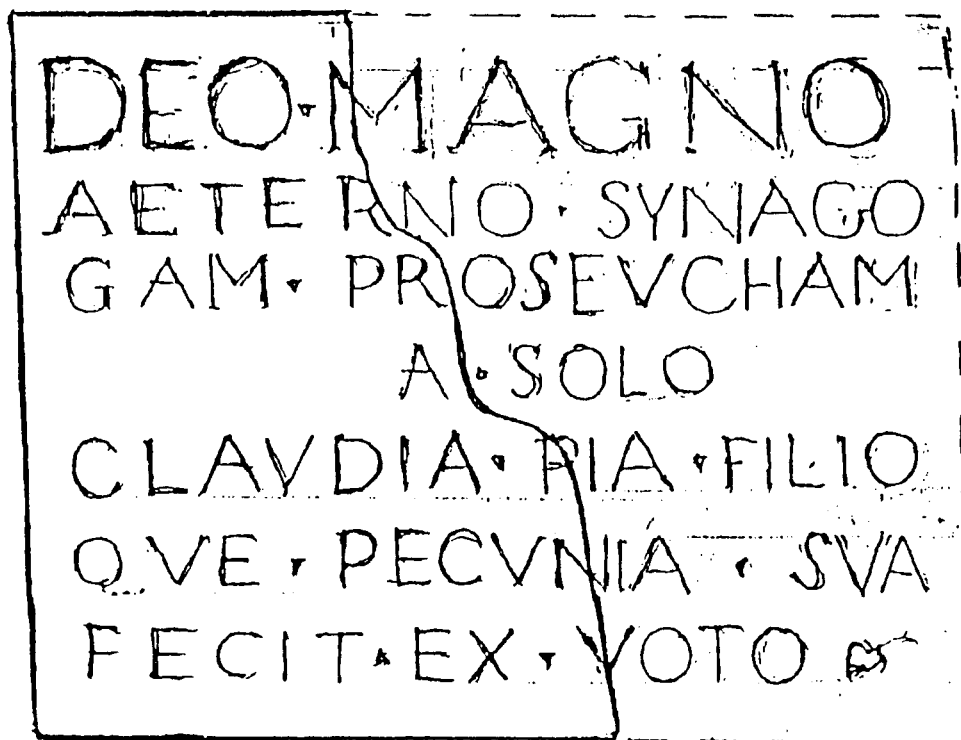 DEO · MAGNO
AETERNO · SYNAGO
GAM · PROSEVCHAM
A · SOLO
CLAVDIA · PIA · FILIO
QVE · PECVNIA · SVA
FECIT · EX · VOTO